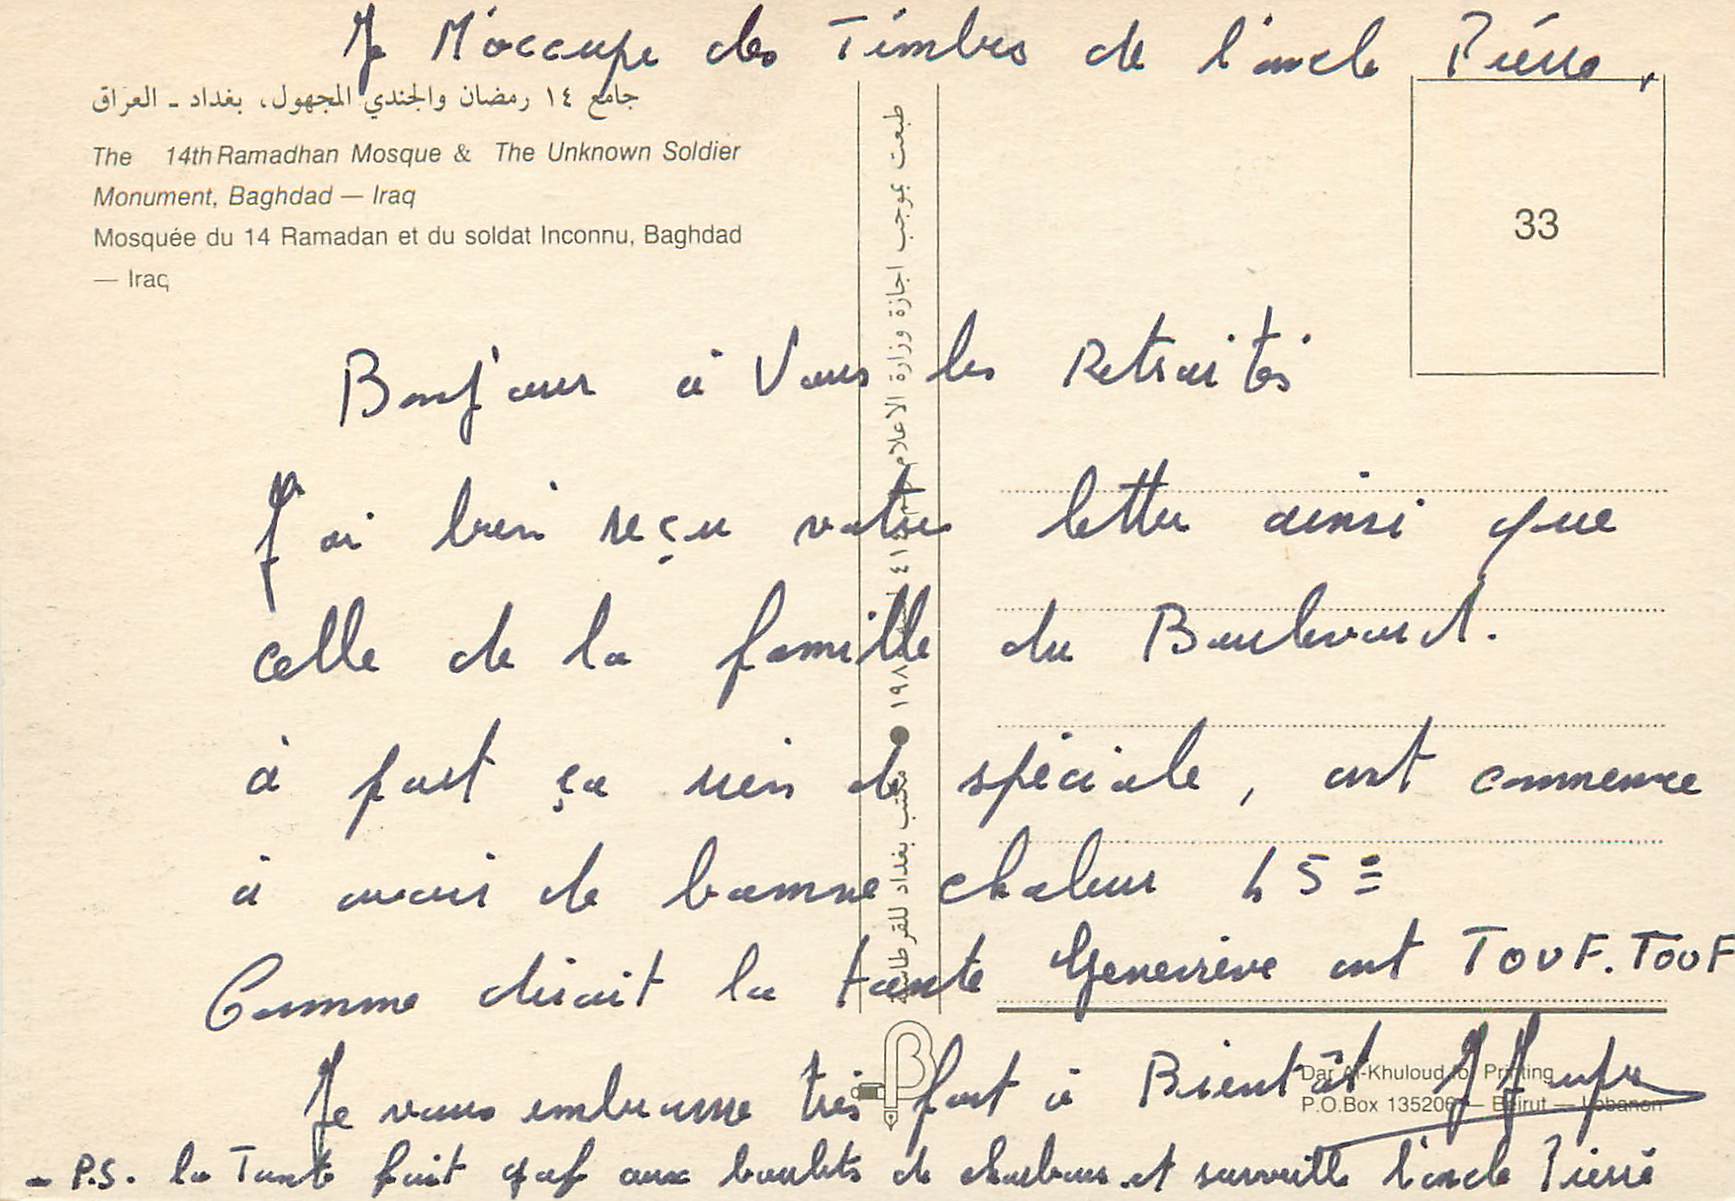 Je M'occupe des Timbres de l'oncle Piérre,
جامع ١٤ رمضان والجندي المجهول، بغداد ـ العراق
The 14th Ramadhan Mosque & The Unknown Soldier
Monument, Baghdad — Iraq
Mosquée du 14 Ramadan et du soldat Inconnu, Baghdad
— Iraq
33
طبعت بموجب اجازة وزارة الاعلام
مكتب بغداد للقرطاسية
Bonjour à Vous les Retraités
J'ai bien reçu votre lettre ainsi que
celle de la famille du Boulevard.
à part ça rien de spéciale, ont commence
à avoir de bonne chaleur 45°
Comme dirait la tante Geneviève ont TOUF.TOUF
Je vous embrasse très fort à Bientôt
Dar Al-Khuloud for Printing
P.O.Box 135206 — Beirut — Lebanon
- P.S. la Tante fait gaf aux boulets de charbons et surveille l'oncle Pierre